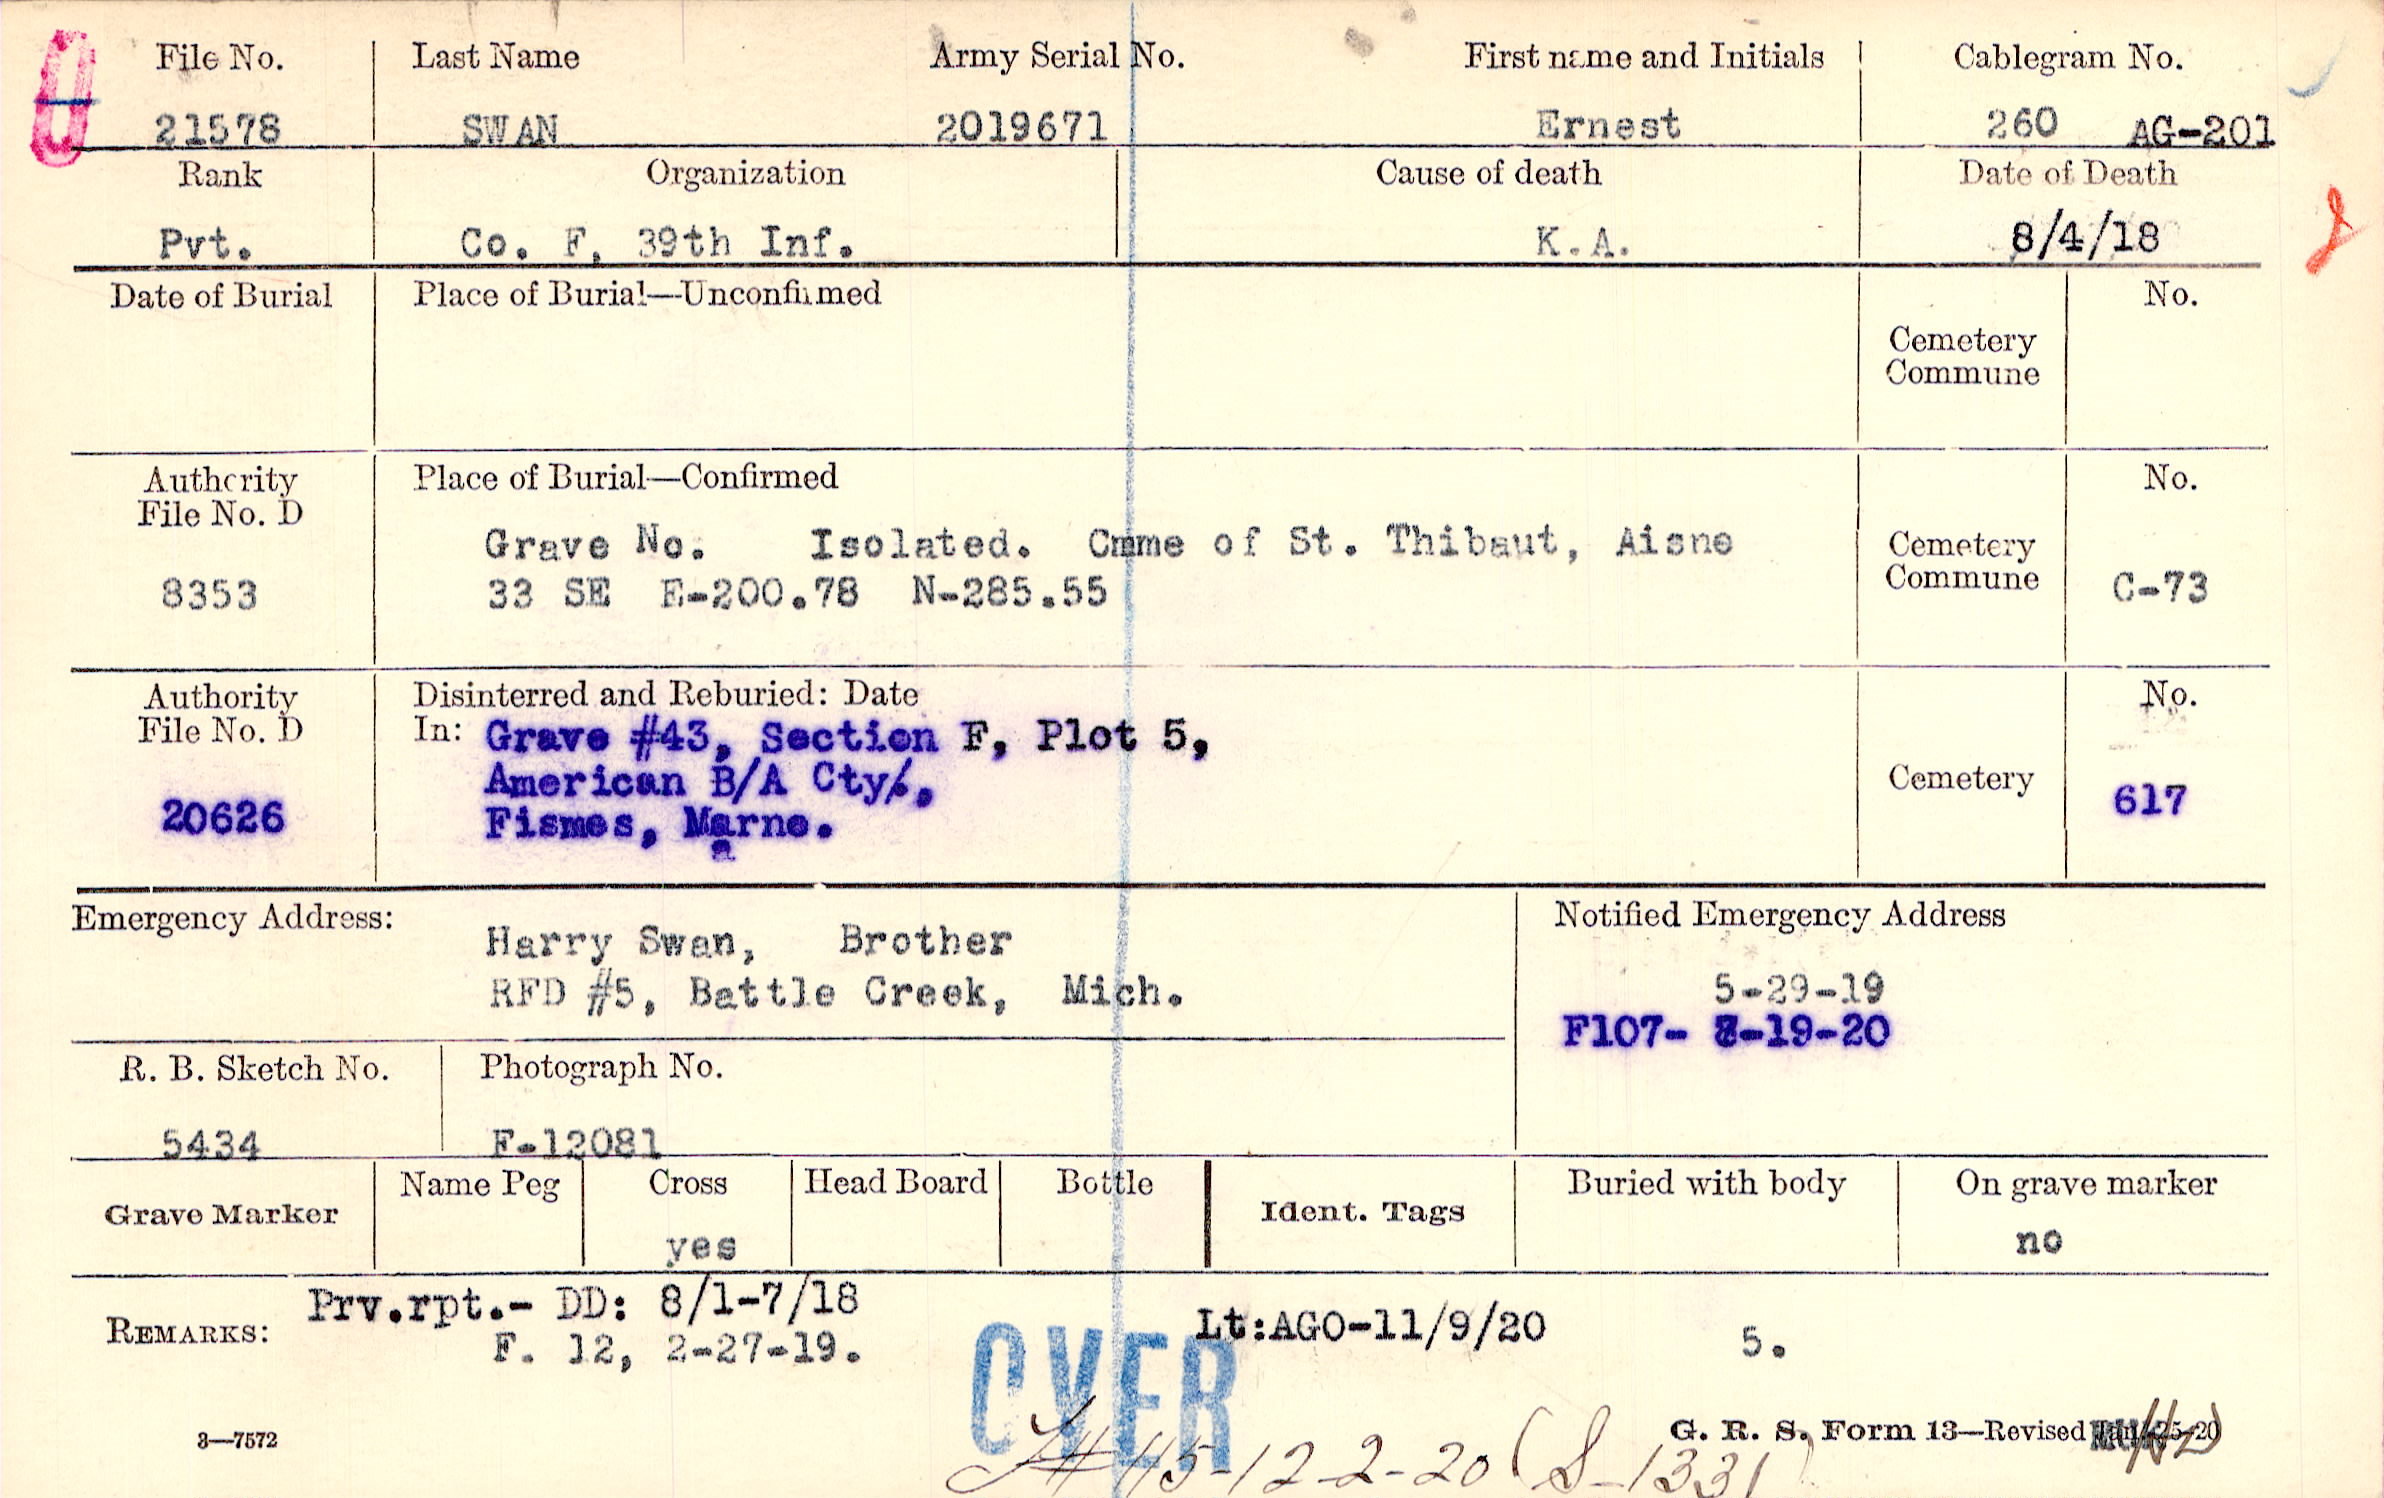 File No. Last Name Army Serial No. First name and Initials Cablegram No.
21578 SWAN 2019671 Ernest 260 AG-201
Rank Organization Cause of death Date of Death
Pvt. Co. F, 39th Inf. K.A. 8/4/18
Date of Burial Place of Burial—Unconfirmed No.
Cemetery
Commune
Authority Place of Burial—Confirmed No.
File No. D
Grave No. Isolated. Cmme of St. Thibaut, Aisne Cemetery
8353 33 SE E-200.78 N-285.55 Commune C-73
Authority Disinterred and Reburied: Date No.
File No. D In: Grave #43, Section F, Plot 5,
American B/A Cty., Cemetery
20626 Fismes, Marne. 617
Emergency Address: Notified Emergency Address
Harry Swan, Brother
RFD #5, Battle Creek, Mich. 5-29-19
F107- -19-20
R. B. Sketch No. Photograph No.
5434 F-12081
Name Peg Cross Head Board Bottle Buried with body On grave marker
Grave Marker Ident. Tags
yes no
Prv.rpt.- DD: 8/1-7/18 Lt:AGO-11/9/20
REMARKS: F. 12, 2-27-19. 5.
OVER
G. R. S. Form 13—Revised
3—7572
115-12-2-20 (S-1331)